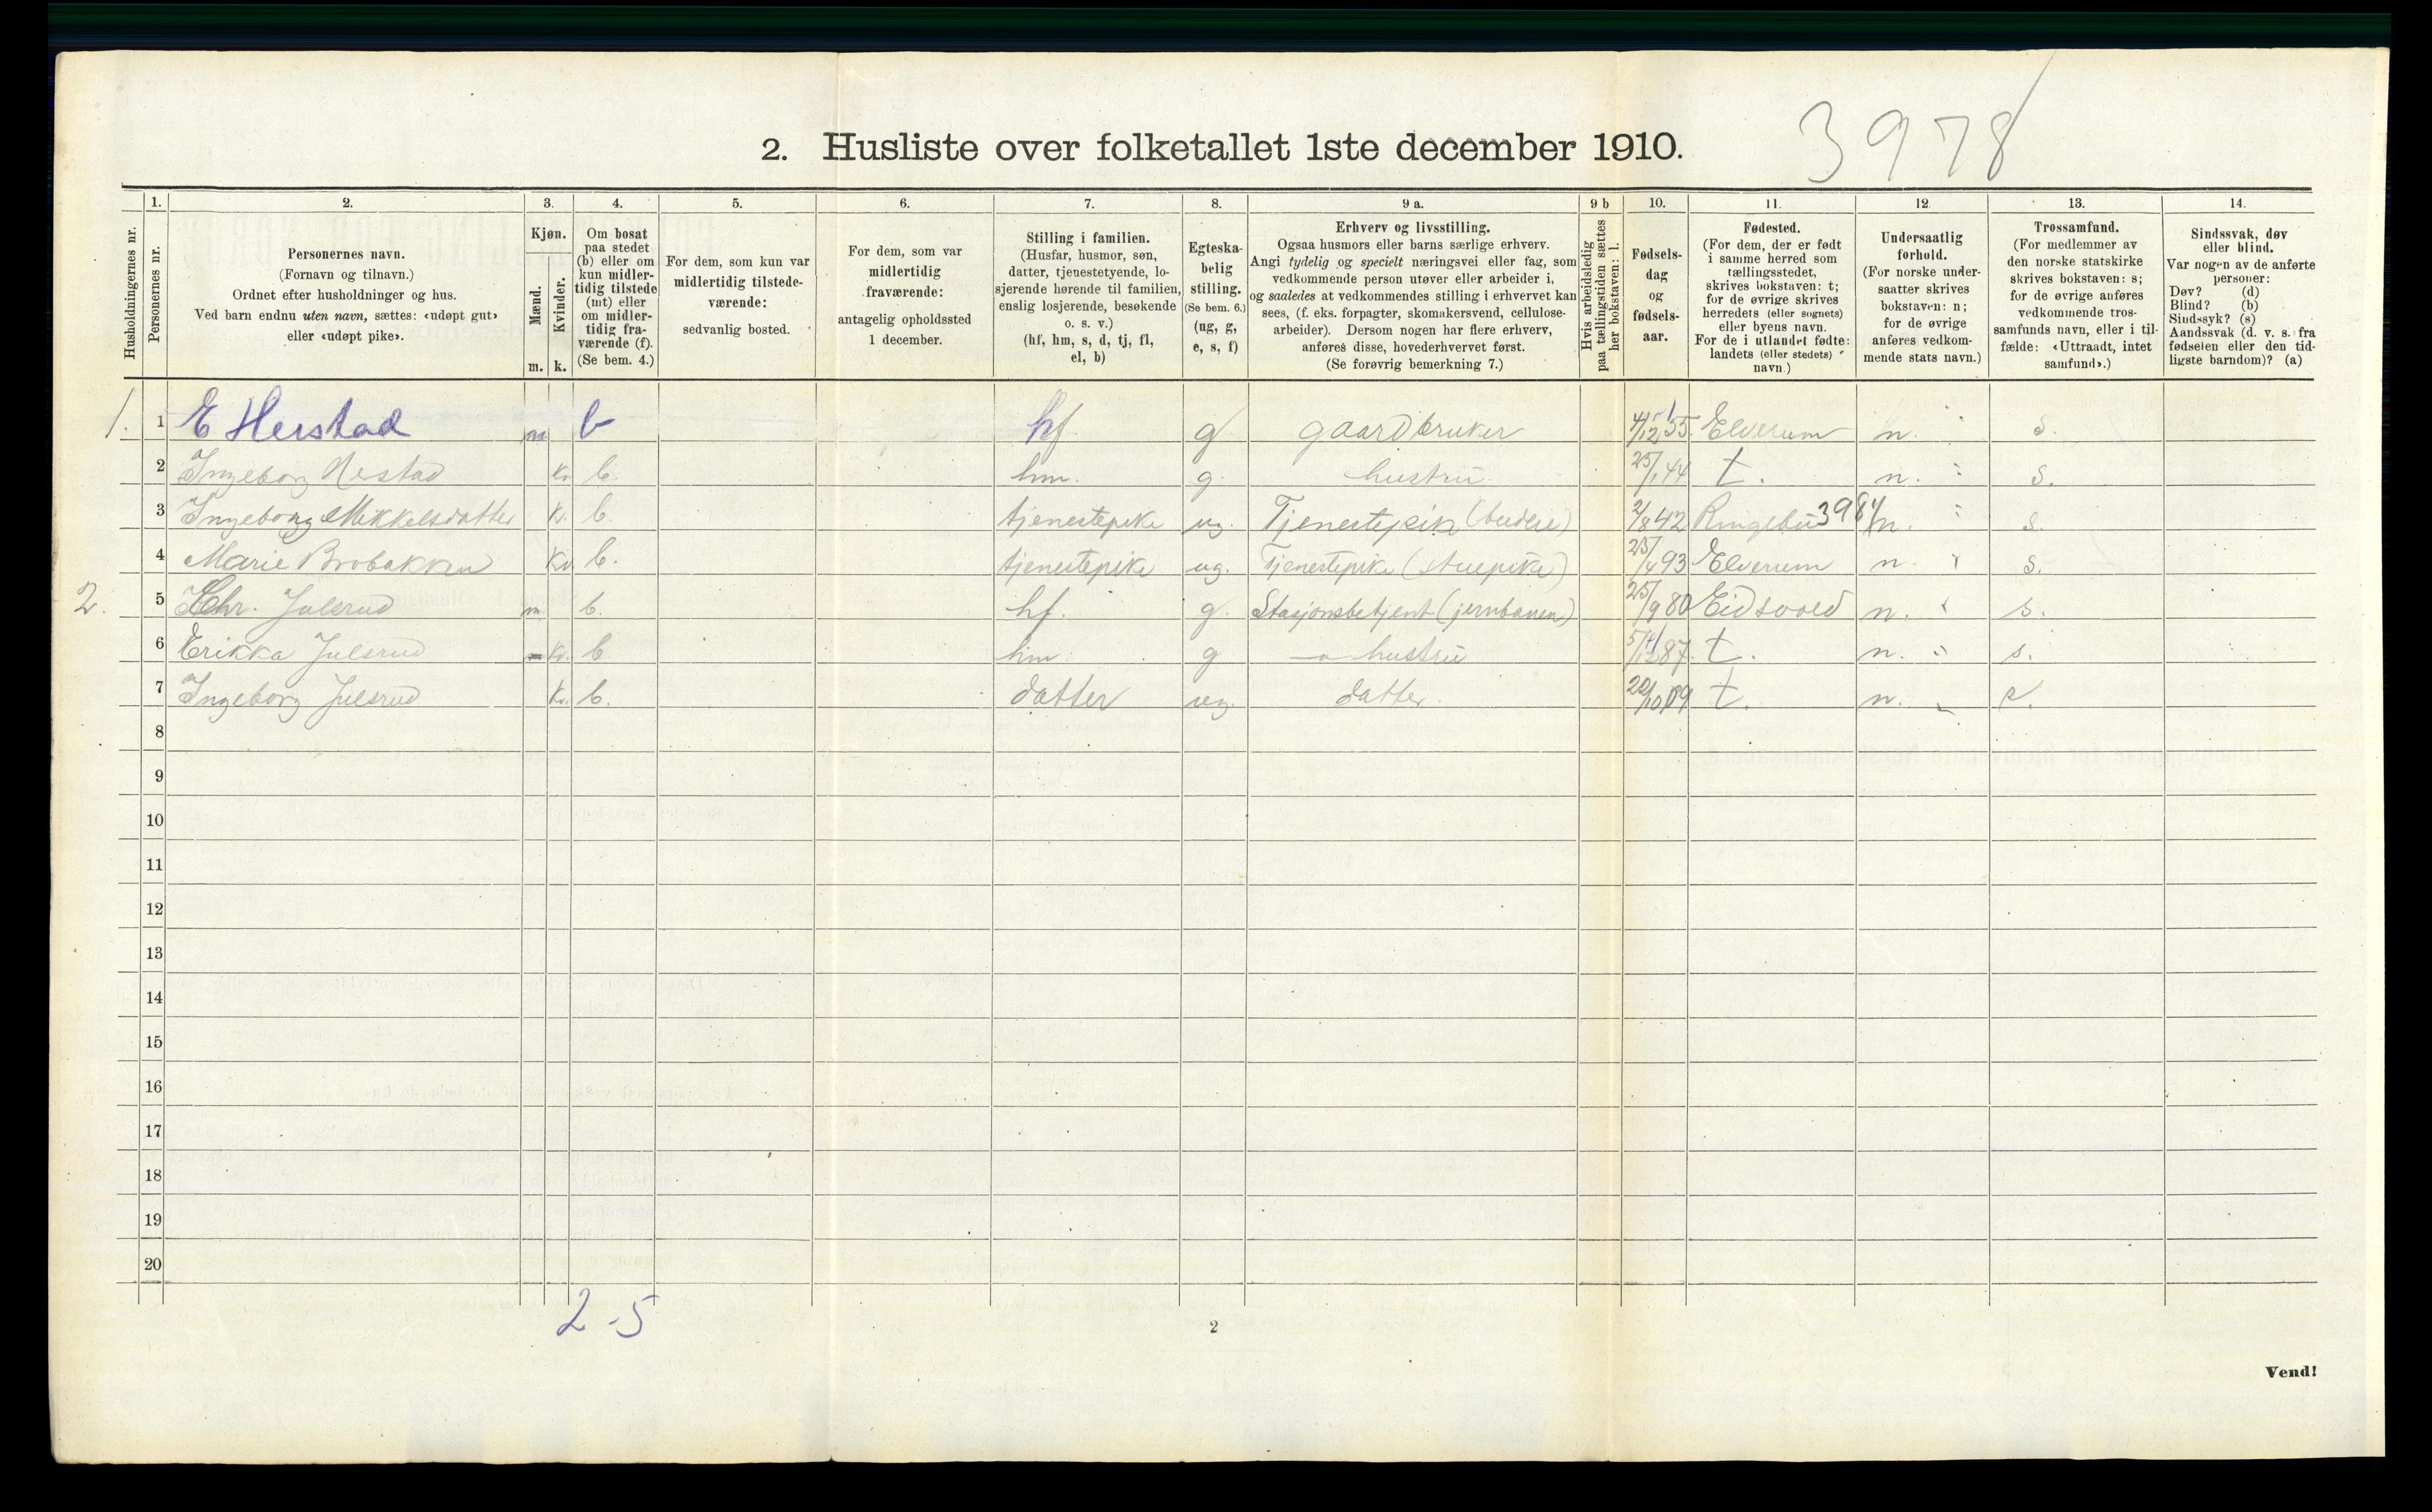 3978
2. Husliste over folketallet 1ste december 1910.
Husholdningernes nr.
1. Personernes nr.
2. Personernes navn. (Fornavn og tilnavn.) Ordnet efter husholdninger og hus. Ved barn endnu uten navn, sættes: «udøpt gut» eller «udøpt pike».
3. Kjøn. Mænd. m. Kvinder. k.
4. Om bosat paa stedet (b) eller om kun midlertidig tilstede (mt) eller om midlertidig fraværende (f). (Se bem. 4.)
5. For dem, som kun var midlertidig tilstedeværende: sedvanlig bosted.
6. For dem, som var midlertidig fraværende: antagelig opholdssted 1 december.
7. Stilling i familien. (Husfar, husmor, søn, datter, tjenestetyende, losjerende hørende til familien, enslig losjerende, besøkende o. s. v.) (hf, hm, s, d, tj, fl, el, b)
8. Egteskabelig stilling. (Se bem. 6.) (ug, g, e, s, f)
9 a. Erhverv og livsstilling. Ogsaa husmors eller barns særlige erhverv. Angi tydelig og specielt næringsvei eller fag, som vedkommende person utøver eller arbeider i, og saaledes at vedkommendes stilling i erhvervet kan sees, (f. eks. forpagter, skomakersvend, cellulosearbeider). Dersom nogen har flere erhverv, anføres disse, hovederhvervet først. (Se forøvrig bemerkning 7.)
9 b Hvis arbeidsledig paa tællingstiden sættes her bokstaven: l.
10. Fødselsdag og fødselsaar.
11. Fødested. (For dem, der er født i samme herred som tællingsstedet, skrives bokstaven: t; for de øvrige skrives herredets (eller sognets) eller byens navn. For de i utlandet fødte: landets (eller stedets) navn.)
12. Undersaatlig forhold. (For norske undersaatter skrives bokstaven: n; for de øvrige anføres vedkommende stats navn.)
13. Trossamfund. (For medlemmer av den norske statskirke skrives bokstaven: s; for de øvrige anføres vedkommende trossamfunds navn, eller i tilfælde: «Uttraadt, intet samfund».)
14. Sindssvak, døv eller blind. Var nogen av de anførte personer: Døv? (d) Blind? (b) Sindssyk? (s) Aandssvak (d. v. s. fra fødselen eller den tidligste barndom)? (a)
1. 1 E Herstad m b hf g gaardbruker 4/12 55 Elverum n. s.
2 Ingeborg Herstad k. b. hm. g. hustru 25/1 44 t. n. s.
3 Ingeborg Mikkelsdatter k. b tjenestepike ug. Tjenestepike (budeie) 2/8 42 Ringebu 3984 n. s.
4 Marie Brobakken Kv b. tjenestepike ug. Tjenestepike (stuepike) 23/4 93 Elverum n s.
2. 5 Chr. Julsrud m. b. hf. g. Stasjonsbetjent (jernbanen) 25/9 80 Eidsvold n. s.
6 Erikka Julsrud kv. b hm g hustru 5/12 87. t. n. s.
7 Ingeborg Julsrud kv. b. datter ug. datter. 20/10 09 t. n. s.
8
9
10
11
12
13
14
15
16
17
18
19
20
2-5
2
Vend!